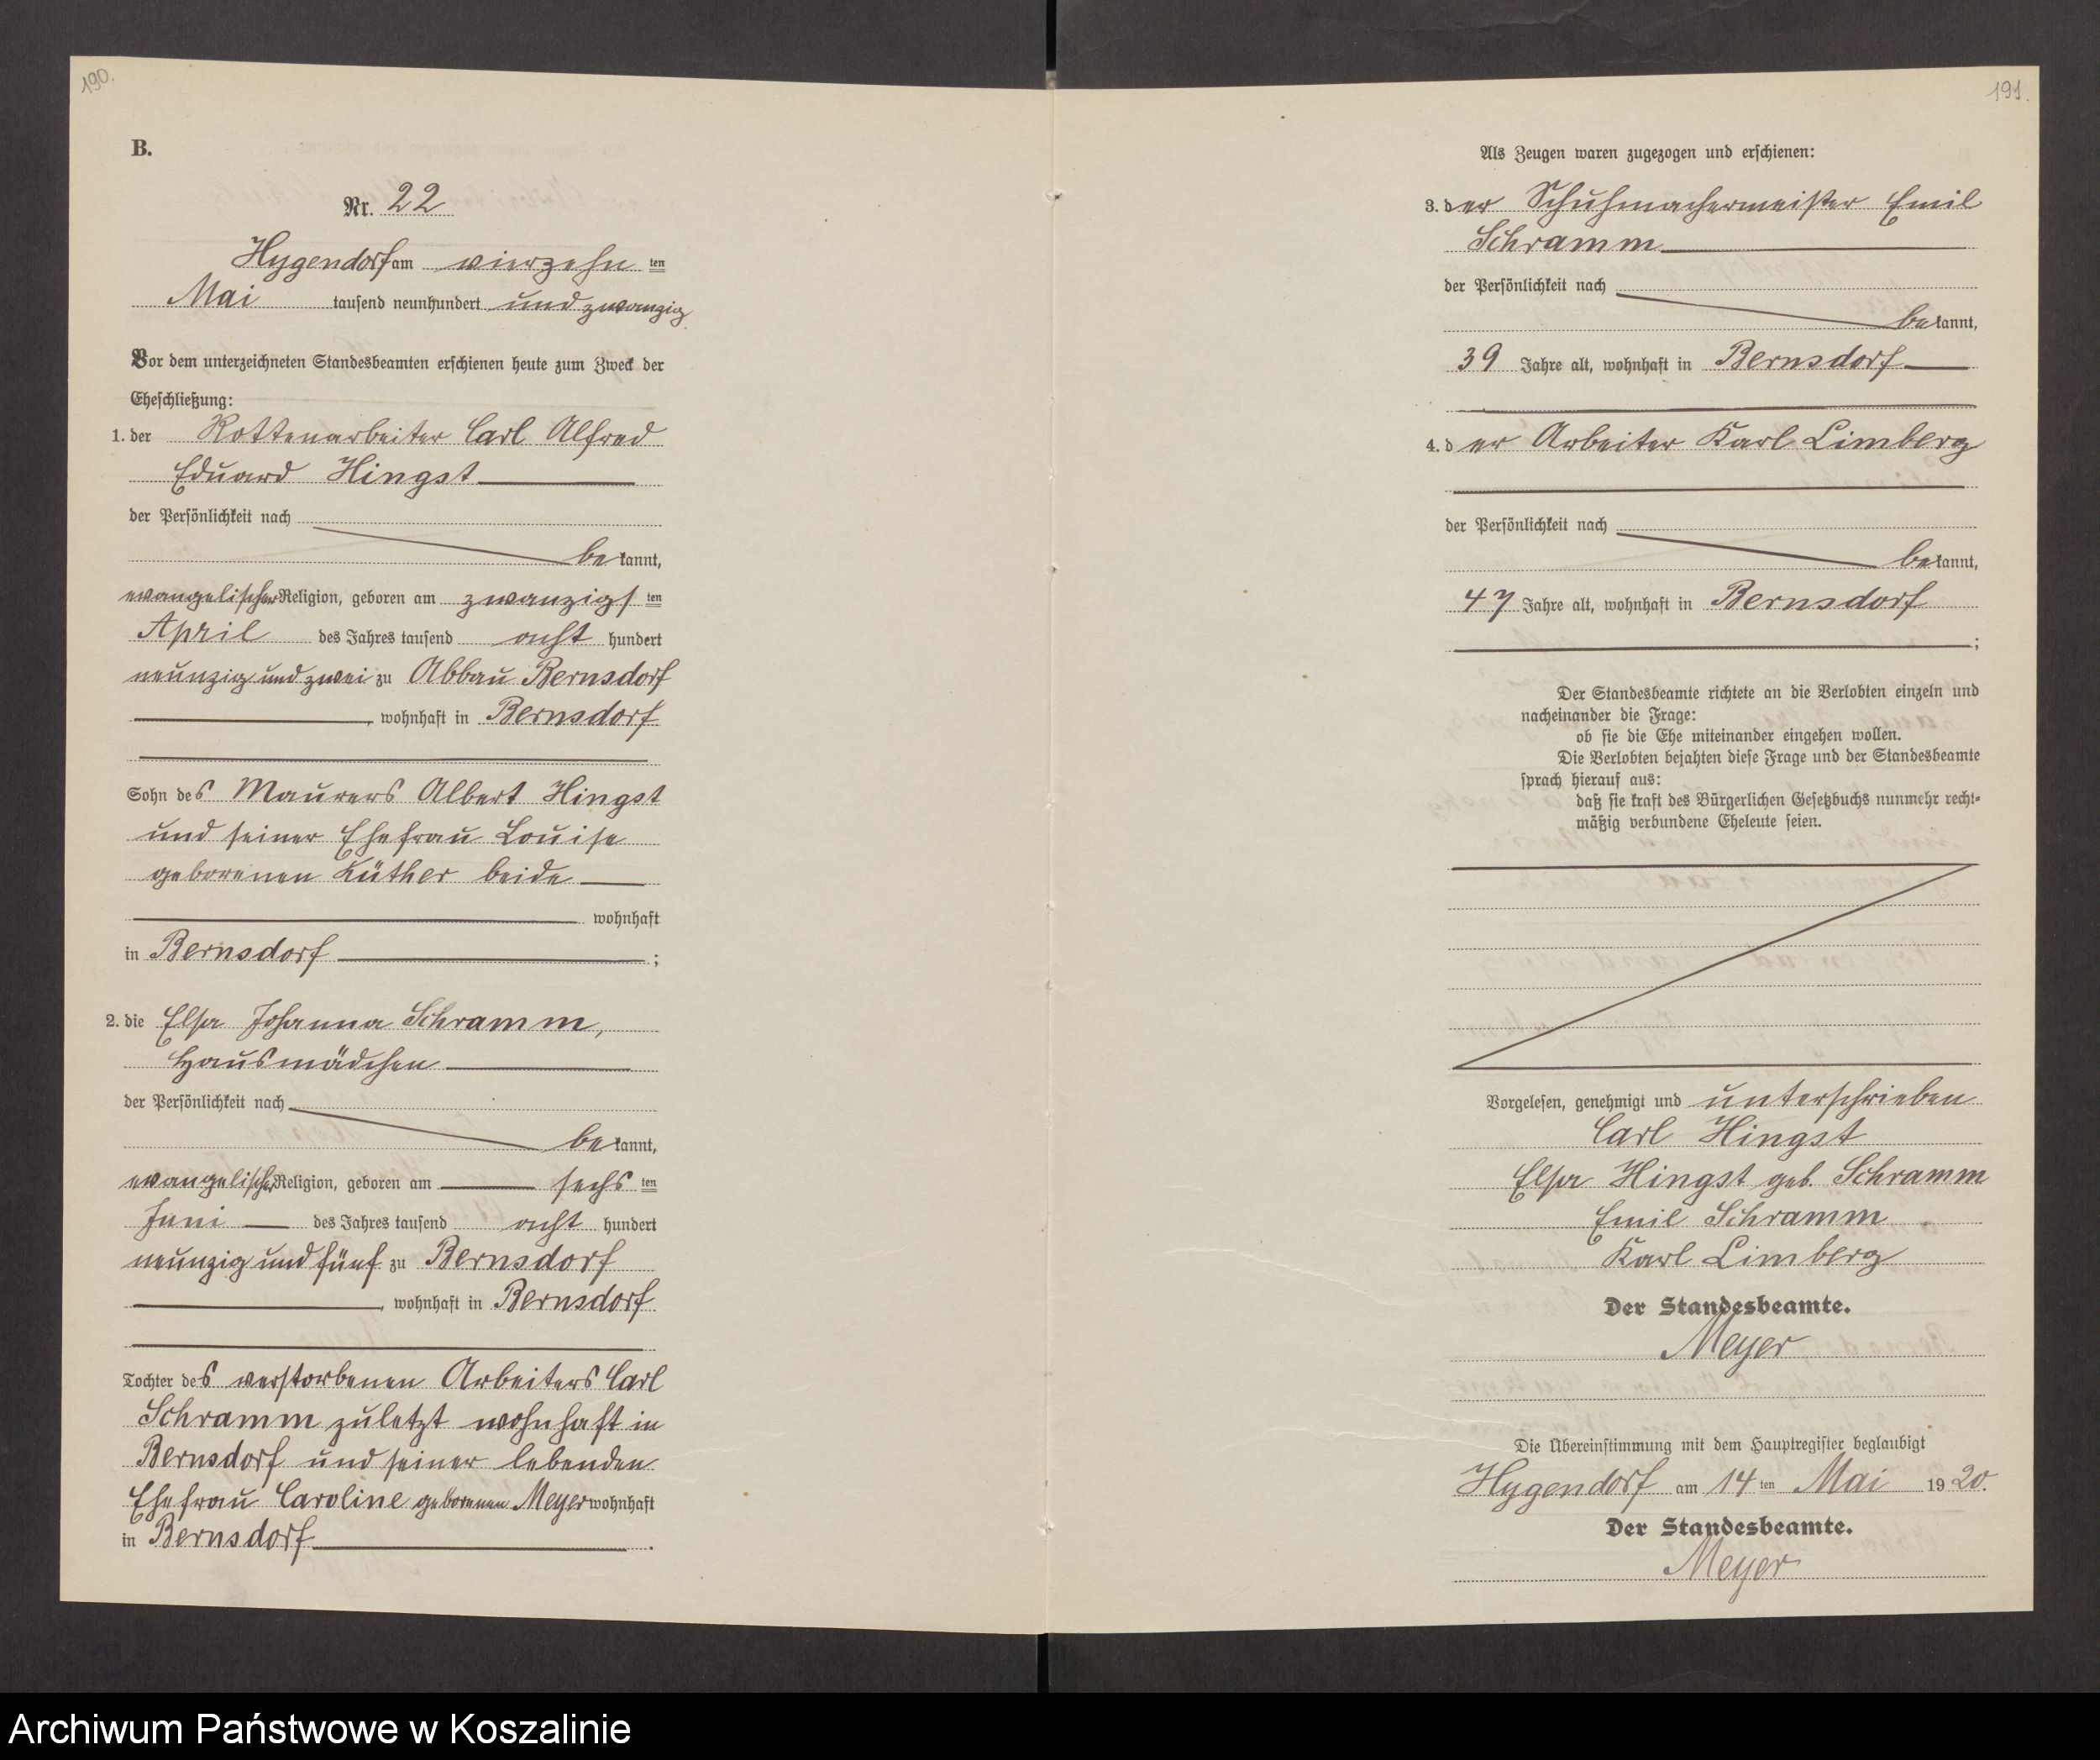 190.
B.
Nr. 22
Hygendorf am vierzehn ten
Mai tausend neunhundert und zwanzig
Vor dem unterzeichneten Standesbeamten erschienen heute zum Zweck der
Eheschließung:
1. der Rottenarbeiter Carl Alfred
Eduard Hingst
der Persönlichkeit nach
bekannt,
evangelischer Religion, geboren am zwanzigsten
April des Jahres tausend acht hundert
neunzig und zwei zu Abbau Bernsdorf
, wohnhaft in Bernsdorf
Sohn des Maurers Albert Hingst
und seiner Ehefrau Louise
geborenen Küther beide
wohnhaft
in Bernsdorf ;
2. die Elsa Johanna Schramm,
Hausmädchen
der Persönlichkeit nach
bekannt,
evangelischer Religion, geboren am sechs ten
Juni des Jahres tausend acht hundert
neunzig und fünf zu Bernsdorf
, wohnhaft in Bernsdorf
Tochter des verstorbenen Arbeiters Carl
Schramm zuletzt wohnhaft in
Bernsdorf und seiner lebenden
Ehefrau Caroline geborenen Meyer wohnhaft
in Bernsdorf .
191.
Als Zeugen waren zugezogen und erschienen:
3. der Schuhmachermeister Emil
Schramm
der Persönlichkeit nach
bekannt,
39 Jahre alt, wohnhaft in Bernsdorf
4. der Arbeiter Karl Limberg
der Persönlichkeit nach
bekannt,
47 Jahre alt, wohnhaft in Bernsdorf
;
Der Standesbeamte richtete an die Verlobten einzeln und
nacheinander die Frage:
ob sie die Ehe miteinander eingehen wollen.
Die Verlobten bejahten diese Frage und der Standesbeamte
sprach hierauf aus:
daß sie kraft des Bürgerlichen Gesetzbuchs nunmehr recht-
mäßig verbundene Eheleute seien.
Vorgelesen, genehmigt und unterschrieben
Carl Hingst
Elsa Hingst geb. Schramm
Emil Schramm
Karl Limberg
Der Standesbeamte.
Meyer
Die Übereinstimmung mit dem Hauptregister beglaubigt
Hygendorf am 14 ten Mai 1920.
Der Standesbeamte.
Meyer
Archiwum Państwowe w Koszalinie